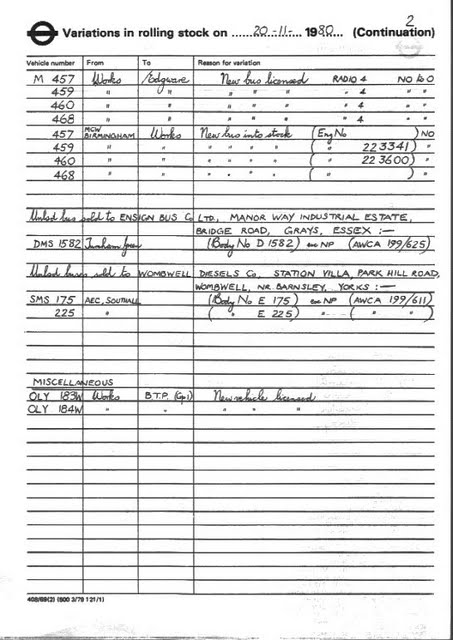 2
Variations in rolling stock on ......20-11-... 1980... (Continuation)
Vehicle number From To Reason for variation
M 457 Works Edgware New bus licensed RADIO 4 NO to O
459 " " " " " " 4 " "
460 " " " " " " 4 " "
468 " " " " " " 4 " "
457 MCW BIRMINGHAM Works New bus into stock (Eng No ) NO
459 " " " " " " ( " 223341) "
460 " " " " " " ( " 223600) "
468 " " " " " " ( " ) "
Unlicd bus sold to ENSIGN BUS Co LTD., MANOR WAY INDUSTRIAL ESTATE,
BRIDGE ROAD, GRAYS, ESSEX :—
DMS 1582 Turnham Green (Body No D 1582) ex NP (AWCA 199/625)
Unlicd buses sold to WOMBWELL DIESELS Co, STATION VILLA, PARK HILL ROAD,
WOMBWELL, NR. BARNSLEY, YORKS :—
SMS 175 AEC, SOUTHALL (Body No E 175) ex NP (AWCA 199/611)
225 " ( " E 225) " " ( " " )
MISCELLANEOUS
OLY 183W Works B.T.P. (Gp1) New vehicle licensed
OLY 184W " " " " "
408/69(2) (600 3/79 121/1)